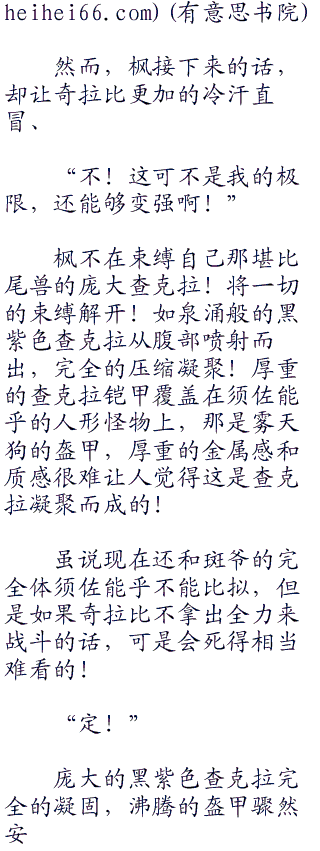 heihei66.com) (有意思书院)
然而，枫接下来的话，
却让奇拉比更加的冷汗直
冒、
“不！这可不是我的极
限，还能够变强啊！”
枫不在束缚自己那堪比
尾兽的庞大查克拉！将一切
的束缚解开！如泉涌般的黑
紫色查克拉从腹部喷射而
出，完全的压缩凝聚！厚重
的查克拉铠甲覆盖在须佐能
乎的人形怪物上，那是雾天
狗的盔甲，厚重的金属感和
质感很难让人觉得这是查克
拉凝聚而成的！
虽说现在还和斑爷的完
全体须佐能乎不能比拟，但
是如果奇拉比不拿出全力来
战斗的话，可是会死得相当
难看的！
“定！”
庞大的黑紫色查克拉完
全的凝固，沸腾的盔甲骤然
安